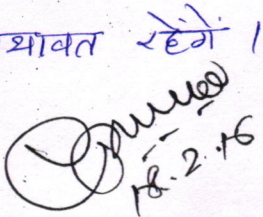 थावत रहेंगे ।
18.2.16